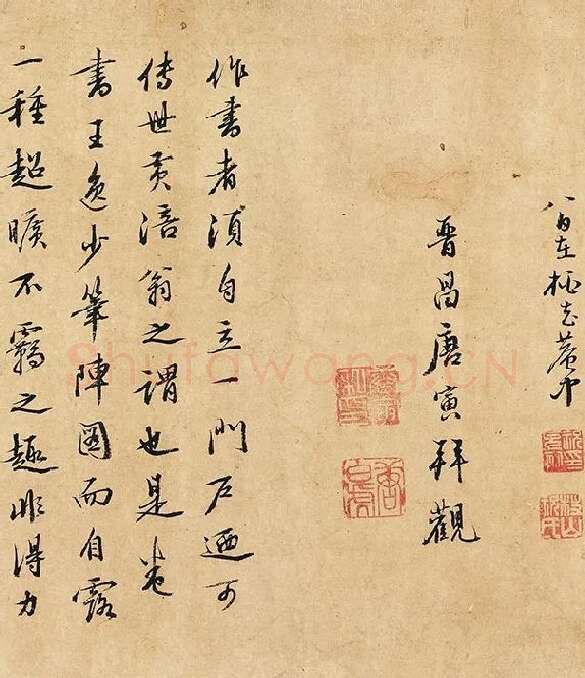 八日在菴中
晋昌唐寅拜觀
唐白虎
作書者須自立一門戶迺可
傳世黃涪翁之謂也是卷
書王逸少筆陣圖而自露
一種超曠不羈之趣非得力
Shufawang.CN